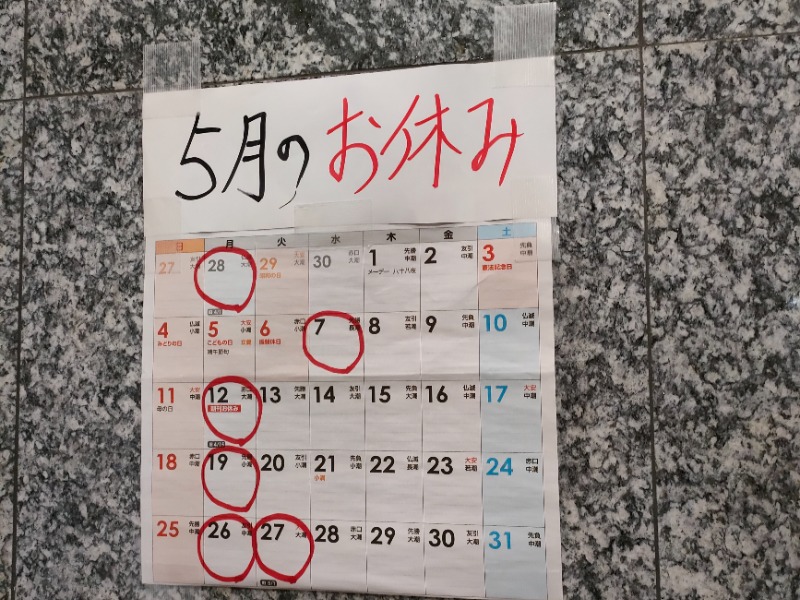 5月のお休み
日 月 火 水 木 金 土
27 28 29 大安 大潮 昭和の日 30 赤口 大潮 1 先勝 中潮 メーデー 八十八夜 2 友引 中潮 3 先負 中潮 憲法記念日
4 仏滅 小潮 みどりの日 5 大安 小潮 こどもの日 端午節句 6 赤口 振替休日 7 8 友引 若潮 9 先負 中潮 10 仏滅 中潮
11 大安 中潮 母の日 12 新聞休み 13 先勝 大潮 14 友引 大潮 15 先負 大潮 16 仏滅 中潮 17 大安 中潮
18 赤口 中潮 19 20 友引 小潮 21 先負 小潮 小満 22 仏滅 長潮 23 大安 若潮 24 赤口 中潮
25 先勝 中潮 26 27 大潮 28 赤口 大潮 29 先勝 大潮 30 友引 大潮 31 先負 中潮